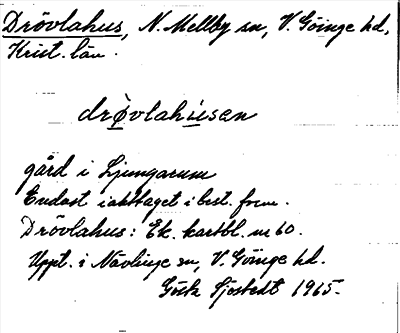 Drövlahus, N. Mellby sn, V. Göinge hd,
Krist. län.
drövlahusen
gård i Ljungarum
Endast iakttaget i best. form.
Drövlahus: Ek. kartbl. nr 60.
Uppt. i Nävlinge sn, V. Göinge hd.
Gösta Sjöstedt 1965.